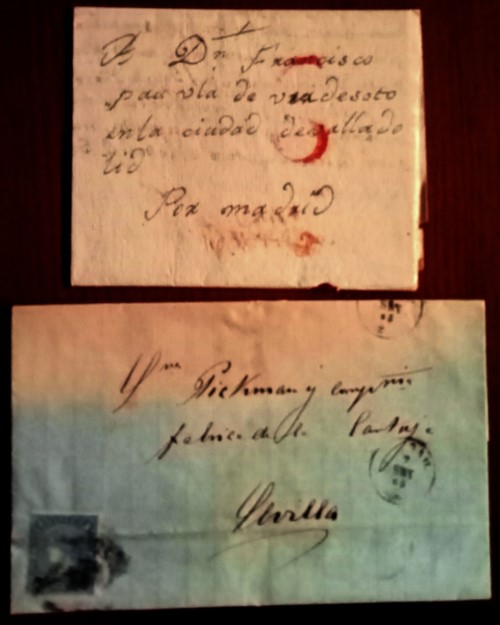 A Dn Francisco
pau vla de viadesoto
en la ciudad devallado
lid
Por madrid
Sres Pickman y compañia
fabrica de la Cartuja
Sevilla